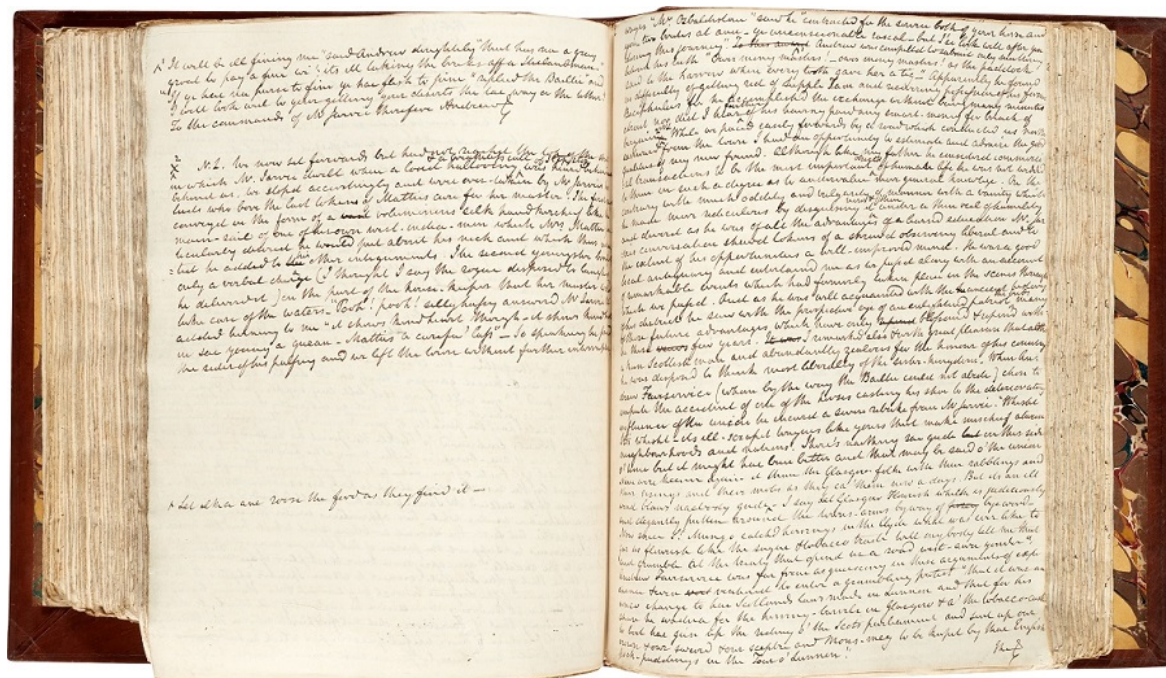 It will be all giving me" said Andrew doughtily "that has na a gray
groat to pay a fine wi' its ill taking the breeks aff a Hielandman.
If ye hae nae purse to fine ye hae flesh to pine" replied the Baillie "and
I will look weel to your getting your deserts the tae way or the tither
To the commands of Mr Jarvie therefore Andrew
N.L. We now set forwards but had not reached the top of the
in which Mr. Jarvie dwelt when a loud hallooing was heard
behind us. We stopd accordingly and were over-taken by Mr Jarvies
lads who bore the last tokens of Matties care for her master. The first
conveyd in the form of a voluminous silk handkerchief like the
main-sail of one of his own west-india-men which Mrs Mattie
-ticularly desired he would put about his neck and which thus
he added to his other integuments. The second youngster brought
only a verbal charge (I thought I saw the rogue disposed to laugh
he deliverd it) on the part of the house-keeper that her master
take care of the waters. "Pooh! pooh! silly hussy answerd Mr Jarvie
added turning to me "it shows a kind heart though - it shows a kind
in sae young a quean - Mattie's a carefu' lass" - So speaking he
the sides of his palfrey and we left the town without farther interruption
Let ilka ane roose the ford as they find it —
"Mr Osbaldistone" said he "contracted for the service both of your horse and
two brutes at ance - ye unconscionable rascal - but I'se look weel after you
during this journey." Andrew was compelled to submit only muttering
between his teeth "Ower mony masters - ower mony masters! as the paddock
said to the harrow when every tooth gave her a tig." Apparently he found
no difficulty of getting rid of Supple Tam and recovering possession of his former
Bucephalus for he accomplishd the exchange without being many minutes
absent nor did I hear further of his having paid any smart-money for breach of
bargain While we paced easily forwards by a road which conducted us north
eastward from the town I had an opportunity to estimate and admire the good
qualities of my new friend. Although like my father he considered commerci
al transactions to be the most important objects of human life he was not wedded
to them in such a degree as to undervalue more general knowlege. On the
contrary with much oddity and vulgarity of manner with a vanity which
he made more ridiculous by disguising it under a thin veil of humility
and divested as he was of all the advantages of a learned education Mr. Jar
vies conversation shewd tokens of a shrewd observing liberal and to
the extent of his opportunities a well-improved mind. He was a good
local antiquary and entertaind me as we passd along with an account
of remarkable events which had formerly taken place in the scenes through
which we passd. And as he was well acquainted with the ancient history
of his district he saw with the prospective eye of an enlightend patriot many
of those future advantages which have only blossomd & ripend with
in these few years. I remarkd also & with great pleasure that altho'
a keen Scottish man and abundantly zealous for the honour of his country
he was disposed to think most liberally of the sister-kingdom. When An
drew Fairservice (whom by the way the Baillie could not abide) chose to
impute the accident of one of the horses casting his shoe to the deteriorating
influence of the union he incurd a severe rebuke from Mr Jarvie. "Whisht
Sir whisht - its ill-scrapit tongues like yours that make mischief atween
neighbourhoods and nations. There's naething sae gude but on this side
o' time but it might hae been better and that may be said o' the union
Nane were keener again it than the Glasgow folk wi' their rabblings and
their risings and their mobs as they ca' them now a days. But its an ill
wind blaws naebody gude - I say let Glasgow flourish whilk is judiciously
and elegantly putten around the town's arms by way of by-word -
Now since St. Mungo catchd herrings in the Clyde what was ever like to
gar us flourish like the sugar & tobacco trade will ony body tell me that
and grumble at the treaty that opend us a road west-awa yonder".
Andrew Fairservice was far from acquiescing in these arguments of expe
-dience & even ventured to enter a grumbling protest "that it was an
unco change to hae Scotlands laws made in Lunnon and that for his
share he wadna for the herring-barrels in Glasgow & a' the tobacco-casks
to boot hae gien up the riding o' the Scots parliament and sent up our
crown & our sword & our sceptre and Mons-meg to be keepit by thae English
pock-puddings in the Tour o' Lunnon."